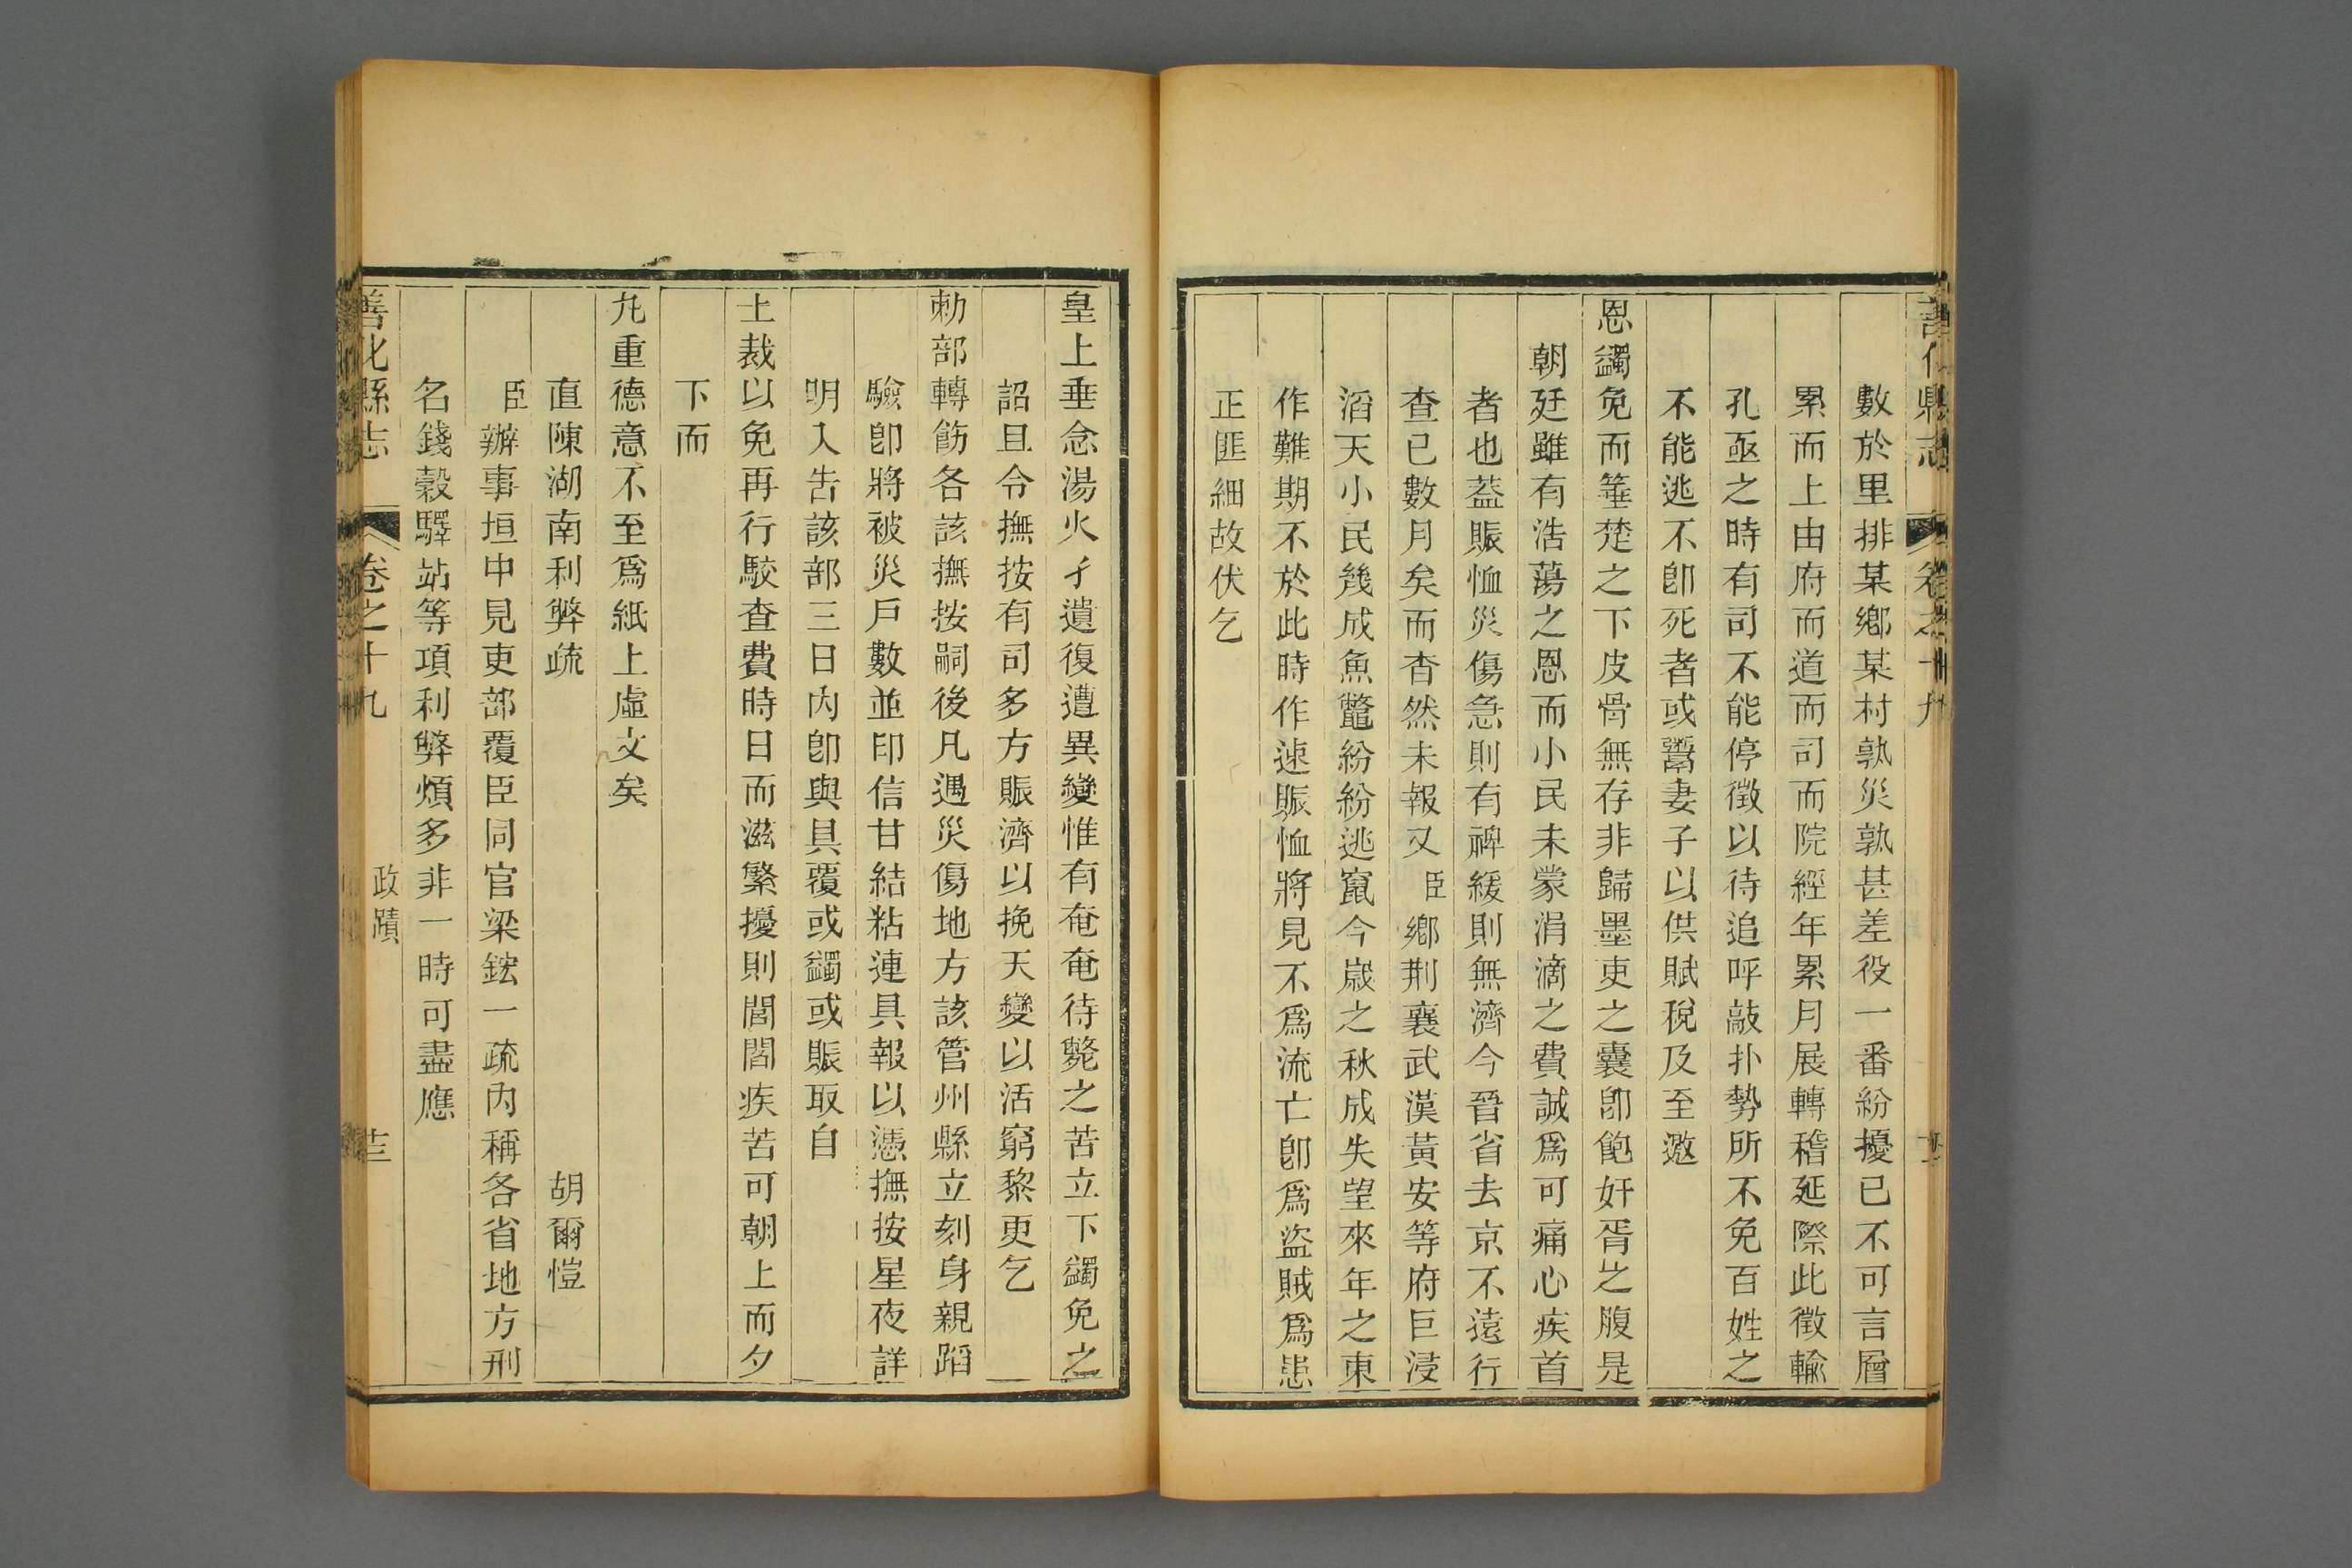 善化縣志 卷之十九
數於里排某鄉某村孰災孰甚差役一番紛擾已不可言層
累而上由府而道而司而院經年累月展轉稽延際此徵輸
孔亟之時有司不能停徵以待追呼敲扑勢所不免百姓之
不能逃不卽死者或鬻妻子以供賦稅及至邀
恩蠲免而箠楚之下皮骨無存非歸墨吏之囊卽飽奸胥之腹是
朝廷雖有浩蕩之恩而小民未蒙涓滴之費誠爲可痛心疾首
者也葢賑恤災傷急則有禆緩則無濟今晉省去京不遠行
查已數月矣而杳然未報又臣鄉荆襄武漢黃安等府巨浸
滔天小民幾成魚鼈紛紛逃竄今歲之秋成失望來年之東
作難期不於此時作速賑恤將見不爲流亡卽爲盜賊爲患
正匪細故伏乞
皇上垂念湯火孑遺復遭異變惟有奄奄待斃之苦立下蠲免之
詔且令撫按有司多方賑濟以挽天變以活窮黎更乞
勅部轉飭各該撫按嗣後凡遇災傷地方該管州縣立刻身親蹈
驗卽將被災戶數並印信甘結粘連具報以憑撫按星夜詳
明入告該部三日內卽與具覆或蠲或賑取自
上裁以免再行駁查費時日而滋繁擾則閭閻疾苦可朝上而夕
下而
九重德意不至爲紙上虛文矣
直陳湖南利弊疏 胡爾愷
臣辦事垣中見吏部覆臣同官梁鋐一疏內稱各省地方刑
名錢穀驛站等項利弊煩多非一時可盡應
善化縣志 卷之十九 政蹟 廿三